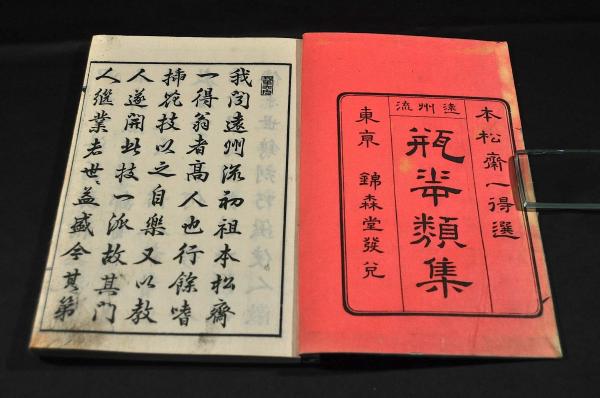 遠州流
本松齋一得選
瓶華類集
東亰 錦森堂發兌
我聞遠州流初祖本松齋
一得翁者高人也行餘嗜
揷花技以之自樂又以教
人遂開此技一派故其門
人繼業者世〻益盛今其第